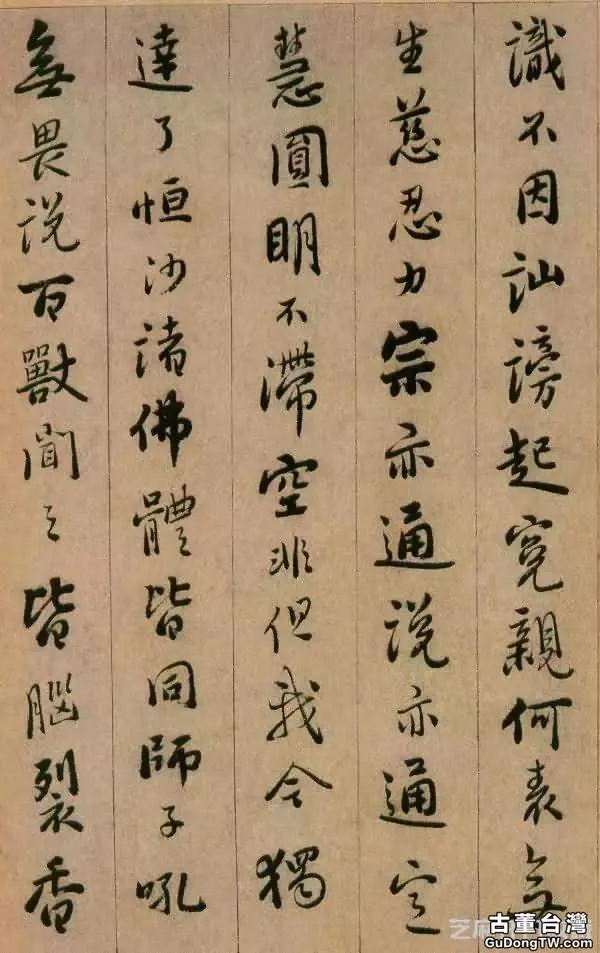 識不因訕謗起寃親何表無
生慈忍力宗亦通說亦通定
慧圓明不滯空非但我今獨
達了恒沙諸佛體皆同師子吼
無畏說百獸聞之皆腦裂香
古董台灣
GuDongTW.com